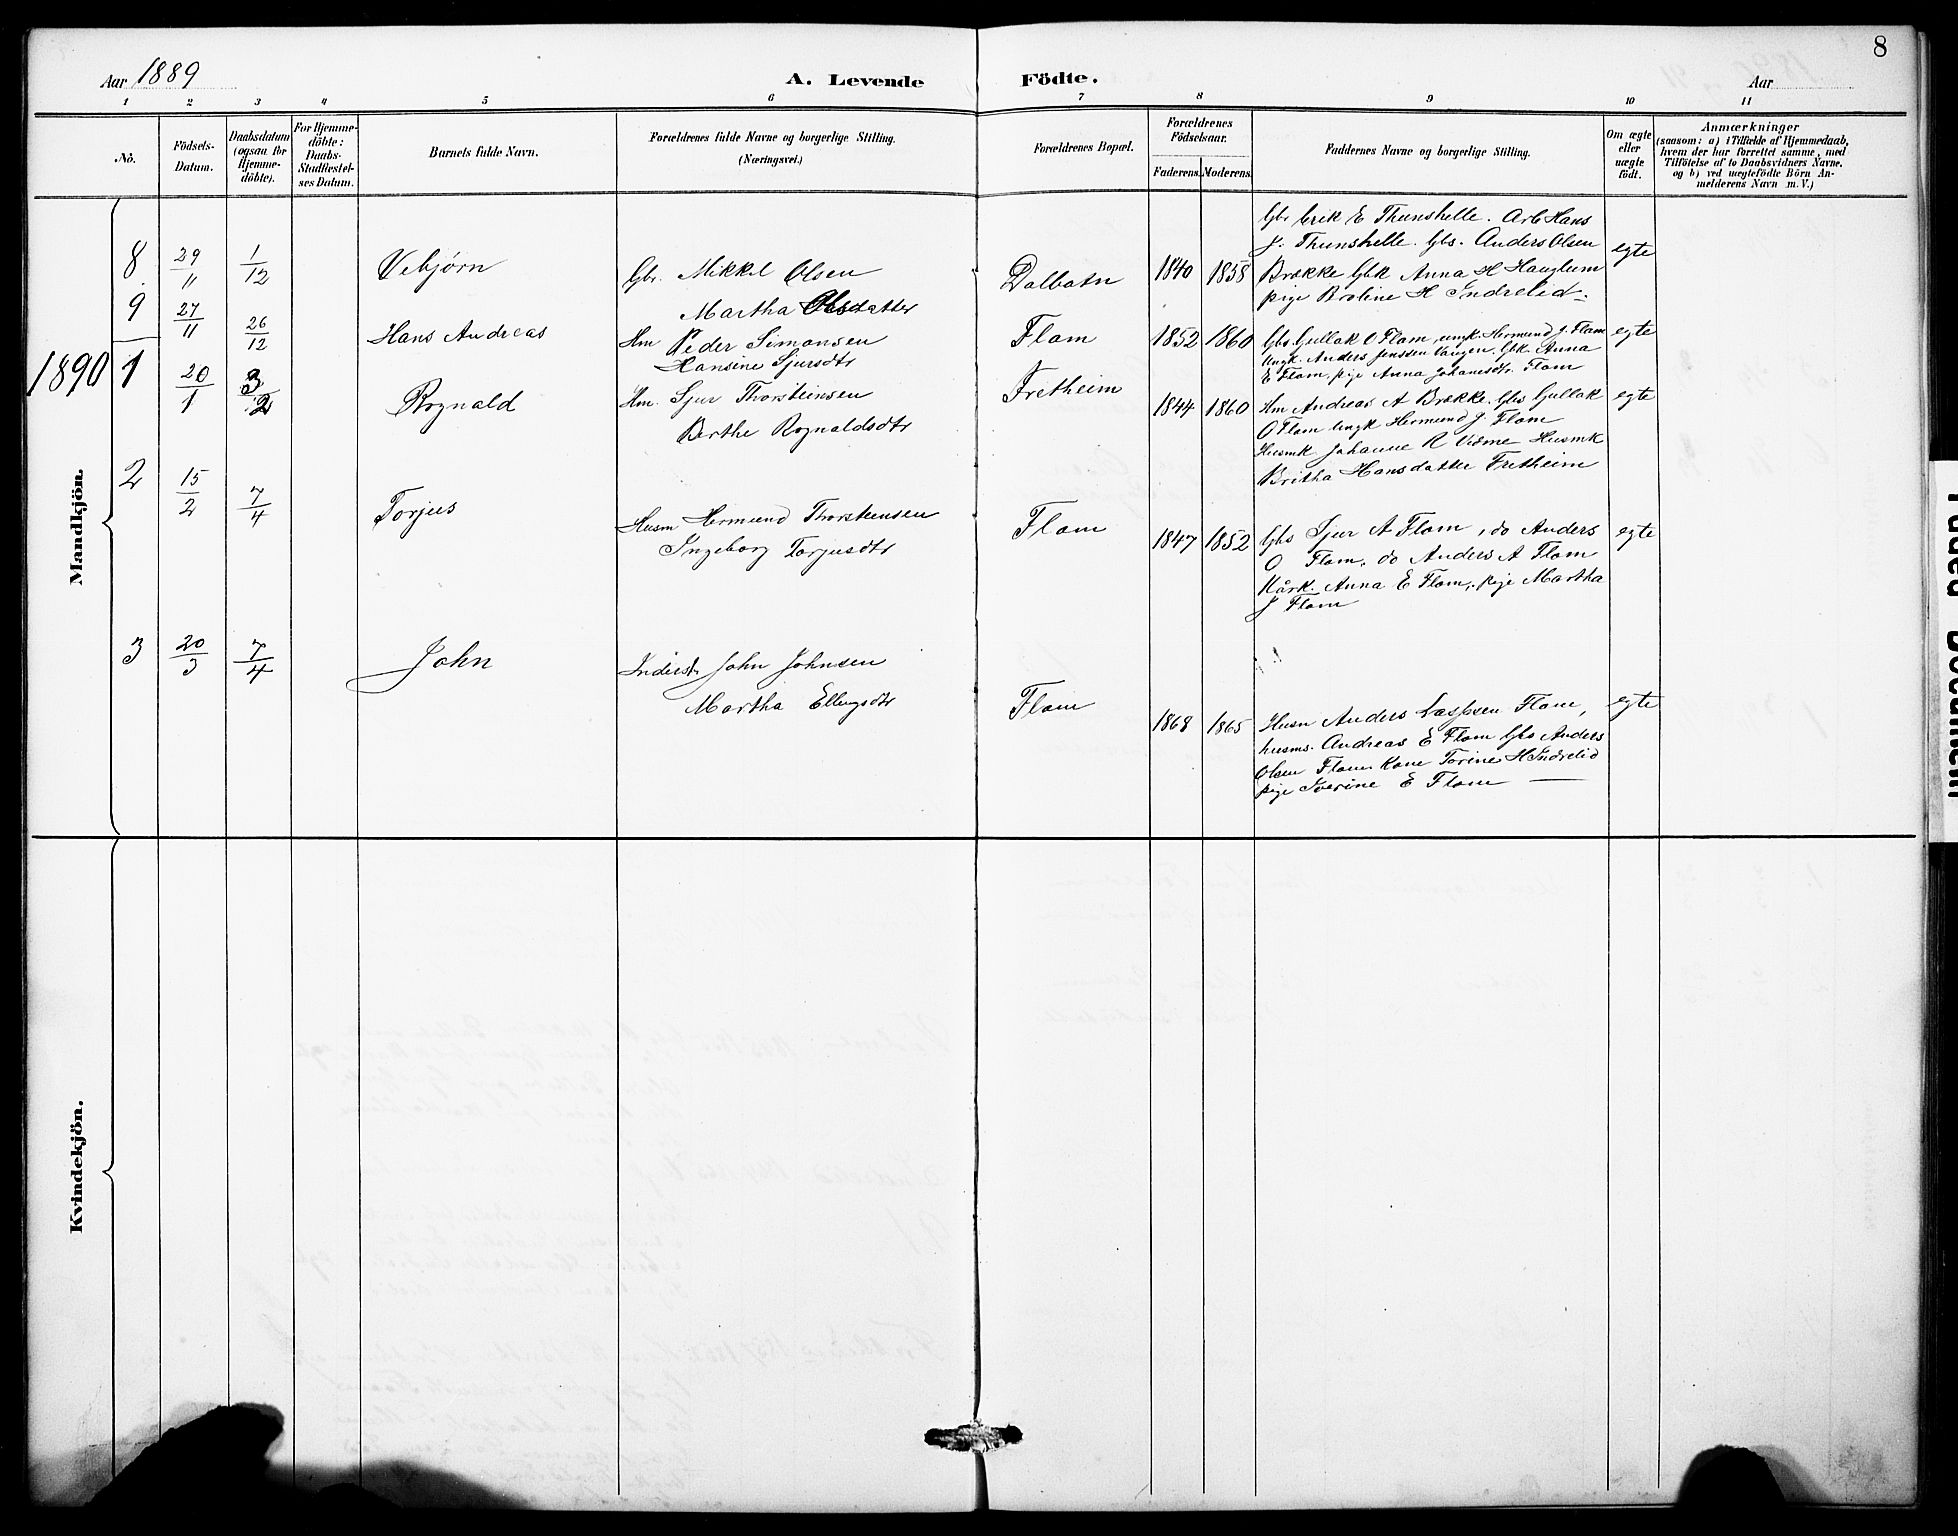 8
Aar 1889
A. Levende Födte.
Aar
1 2 3 4 5 6 7 8 9 10 11
No.
Födsels-
Datum.
Daabsdatum
(ogsaa for
Hjemme-
döbte).
For Hjemme-
döbte:
Daabs-
Stadfæstel-
ses Datum.
Barnets fulde Navn.
Forældrenes fulde Navne og borgerlige Stilling.
(Næringsvei.)
Forældrenes Bopæl.
Forældrenes
Födselsaar.
Faderens. Moderens.
Faddernes Navne og borgerlige Stilling.
Om ægte
eller
uægte
födt.
Anmærkninger
(saasom: a) i Tilfælde af Hjemmedaab,
hvem der har forrettet samme, med
Tilföielse af to Daabsvidners Navne.
og b) ved uægtefödte Börn An-
melderens Navn m. V.)
Mandkjön.
8 29/11 1/12 Vebjørn Gbr. Mikkel Olsen
Martha Olsdatter
Dalbotn 1840 1858
Gbr Erik E Thunshelle. Arb Hans
J. Thunshelle. Gbs. Anders Olsen
Brække Gbk Anna H Hauglum
pige Broline H Indrelid
egte
9 27/11 26/12 Hans Andreas Hm Peder Simonsen
Hansine Sjursdtr
Flam 1852 1860
Gbs Gullak O Flam, ungk. Hermund J. Flam
Ungk. Anders Jenssen Vangen. Gbk Anna
E Flam, pige Anna Johannsdtr. Flam
egte
1890 1 20/1 3/2 Rognald Hm. Sjur Thorsteinsen
Berthe Rognaldsdtr
Fretheim 1844 1860
Hm Andreas A Brække. Gbs Gullak
O Flam Ungk Hermund J. Flam
Husmk Johanne R Vidme Husmk
Britha Hansdatter Fretheim
egte
2 15/2 7/4 Torjus Husm Hermund Thorsteinsen
Ingeborg Torjusdtr
Flam 1847 1852
Gbs Sjur A Flam, do Anders
O Flam, do Anders A Flam
Kårk. Anna E Flam, pige Martha
J Flam
egte
3 20/3 7/4 John Inderst John Johnsen
Martha Ellingsdtr
Flam 1868 1865
Husm Anders Lassen Flam,
husms. Andreas E Flam Gbs Anders
Olsen Flam Kone Torine H Indrelid
pige Severine E Flam
egte
Kvindekjön.